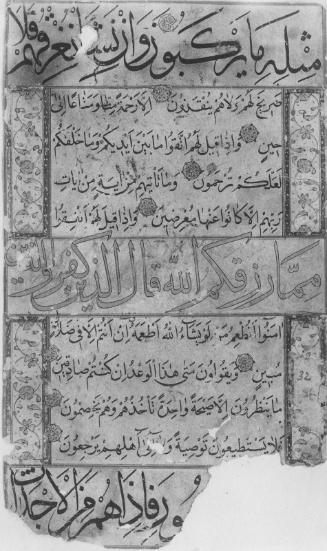 مثله ما يركبون وان نشا نغرقهم فلا
صريخ لهم ولا هم ينقذون الا رحمة منا ومتاعا الى
حين واذا قيل لهم اتقوا ما بين ايديكم وما خلفكم
لعلكم ترحمون وما تاتيهم من اية من ايات
ربهم الا كانوا عنها معرضين واذا قيل لهم انفقوا
مما رزقكم الله قال الذين كفروا للذين
امنوا انطعم من لو يشاء الله اطعمه ان انتم الا في ضلال
مبين ويقولون متى هذا الوعد ان كنتم صادقين
32
ما ينظرون الا صيحة واحدة تاخذهم وهم يخصمون
فلا يستطيعون توصية ولا الى اهلهم يرجعون
ور فاذا هم من الاجداث